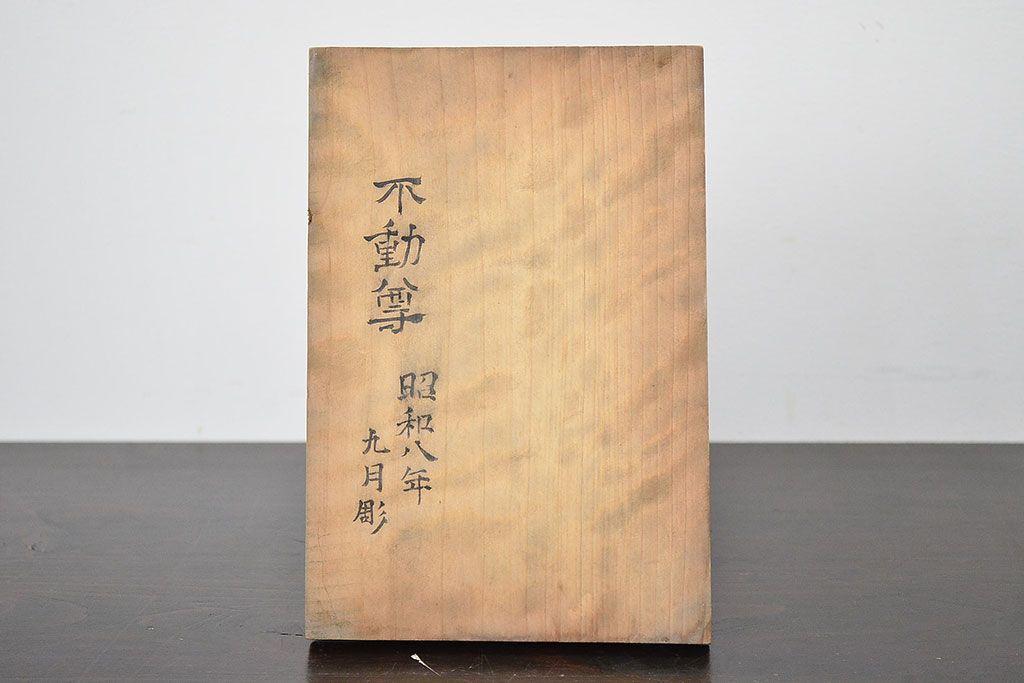 不動尊
昭和八年
九月彫